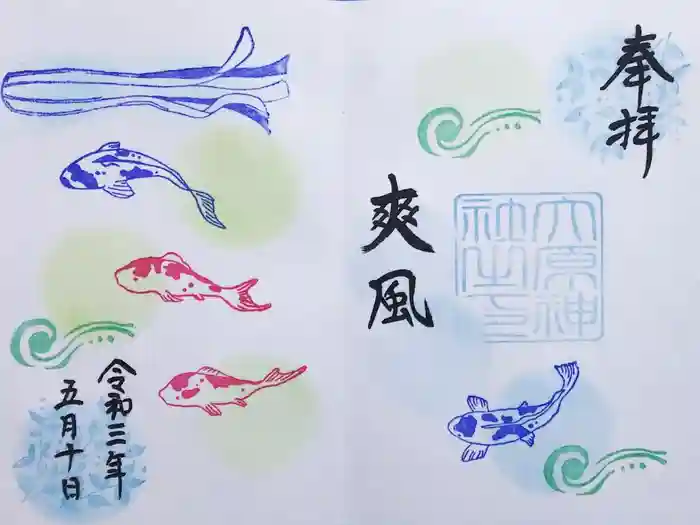 奉拝
爽風
六原神
社之印
令和三年
五月十日